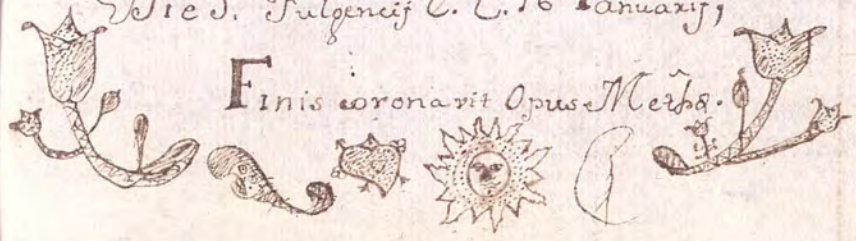 Die S. Fulgencij C. C. 16 Ianuarij,
Finis coronavit Opus Methæ.